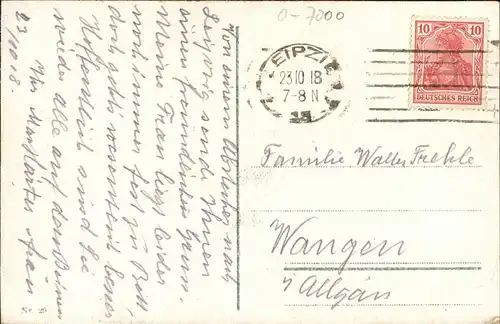 0-7000
LEIPZIG
23.10.18
7-8 N
10 10
DEUTSCHES REICH
Von einem Abstecher nach
Leipzig sende Ihnen
einen freundlichen Gruss.
Meine Frau liegt leider
noch immer fest zu Bett,
doch geht's wesentlich besser
Hoffentlich sind Sie
wieder alle auf den Beinen
Ihr
23.10.8.
Familie Walter
Wangen
i/Allgäu
Nr. 25